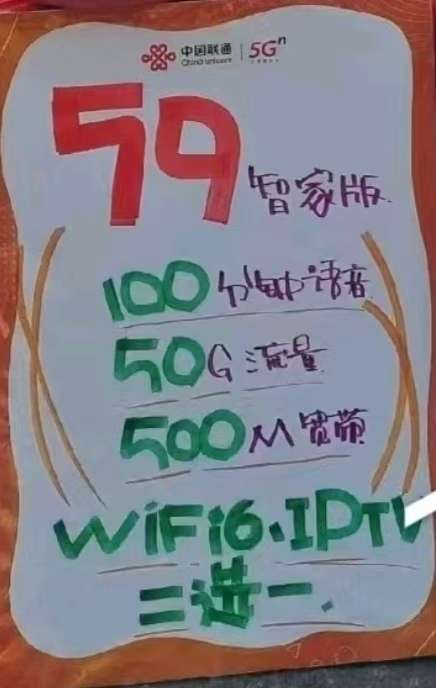 中国联通 China unicom 5Gⁿ
59 智家版
100分钟语音
50G流量
500M宽带
WiFi6、IPTV
二进一.